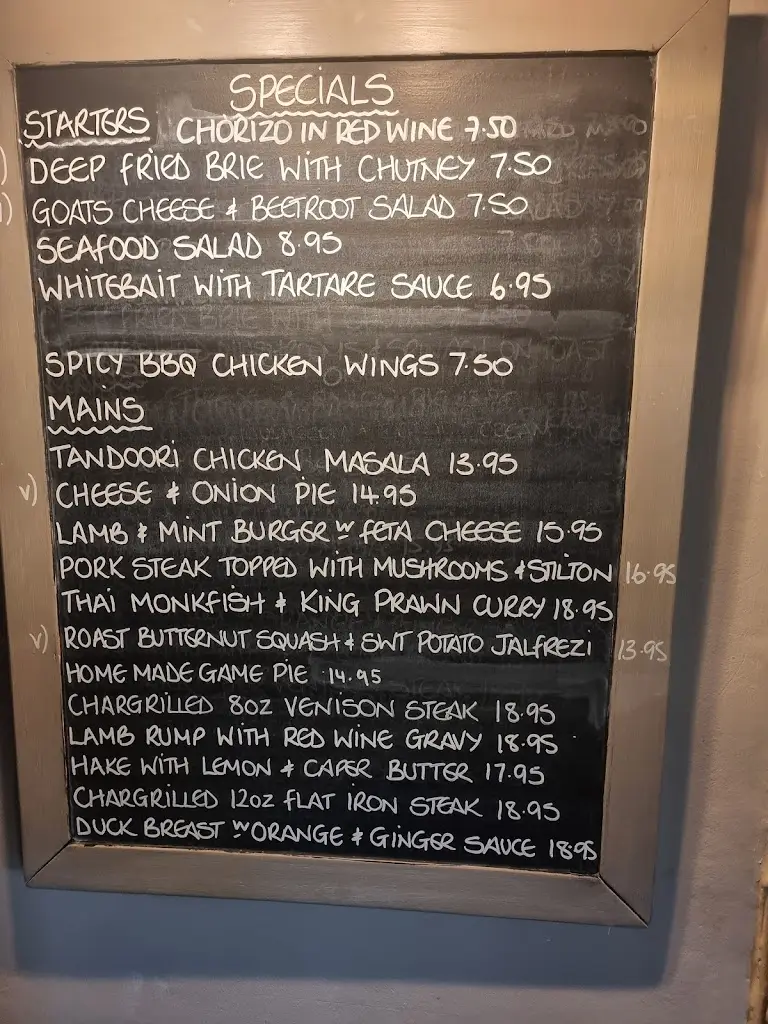 SPECIALS
STARTERS CHORIZO IN RED WINE 7.50
) DEEP FRIED BRIE WITH CHUTNEY 7.50
) GOATS CHEESE & BEETROOT SALAD 7.50
SEAFOOD SALAD 8.95
WHITEBAIT WITH TARTARE SAUCE 6.95
SPICY BBQ CHICKEN WINGS 7.50
MAINS
TANDOORI CHICKEN MASALA 13.95
v) CHEESE & ONION PIE 14.95
LAMB & MINT BURGER w FETA CHEESE 15.95
PORK STEAK TOPPED WITH MUSHROOMS & STILTON 16.95
THAI MONKFISH & KING PRAWN CURRY 18.95
v) ROAST BUTTERNUT SQUASH & SWT POTATO JALFREZI 13.95
HOME MADE GAME PIE 14.95
CHARGRILLED 8OZ VENISON STEAK 18.95
LAMB RUMP WITH RED WINE GRAVY 18.95
HAKE WITH LEMON & CAPER BUTTER 17.95
CHARGRILLED 12OZ FLAT IRON STEAK 18.95
DUCK BREAST w ORANGE & GINGER SAUCE 18.95